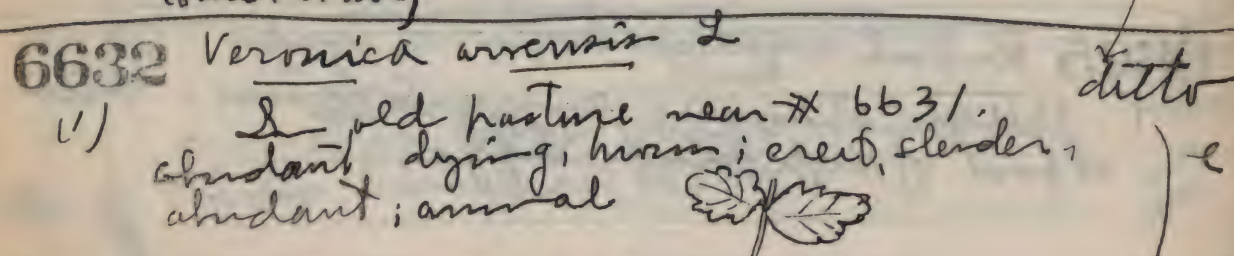 6632 Veronica arvensis L
ditto
(1) old pasture near # 6631.
abundant dying, ; erect, slender,
abundant; annual
e